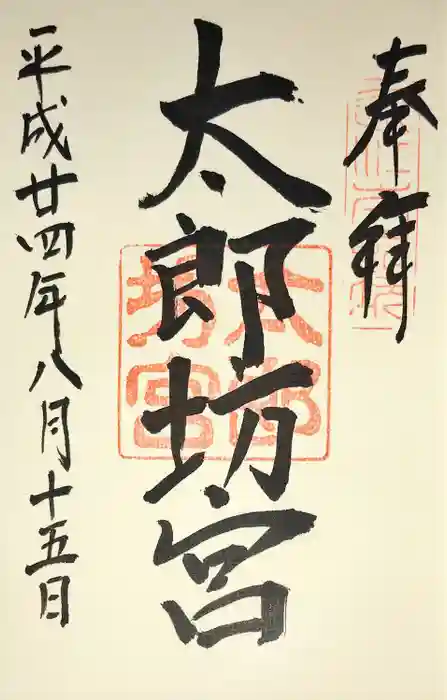 奉拝
太郎坊宮
太郎坊宮
平成廿四年八月十五日